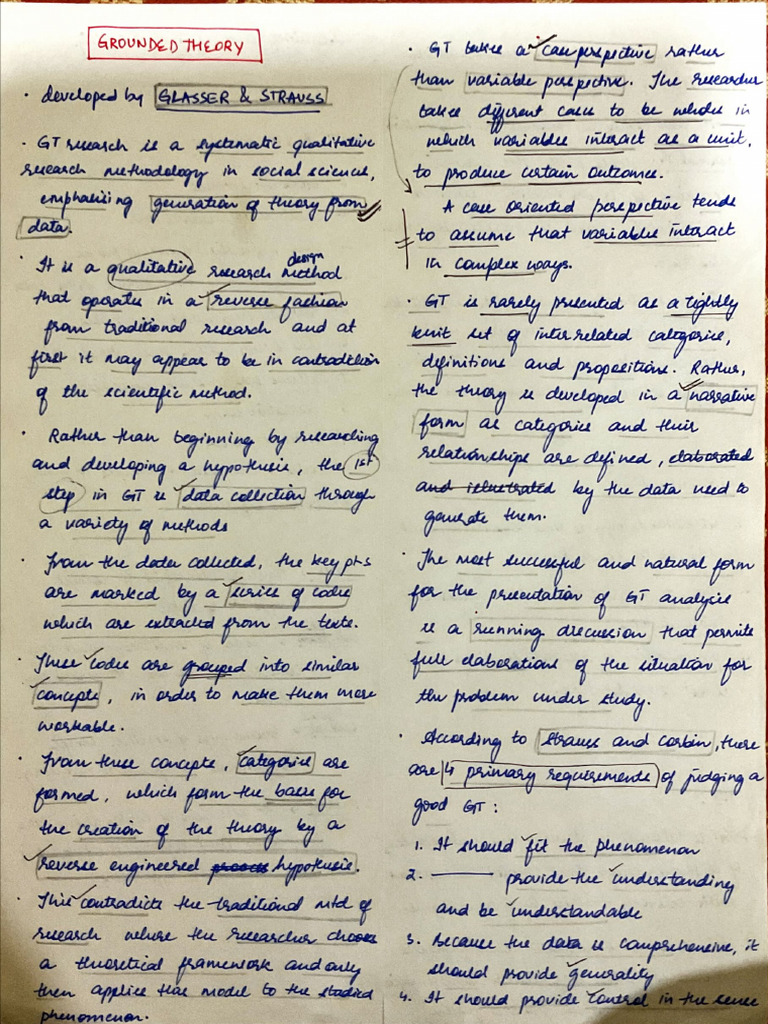 GROUNDED THEORY
· developed by GLASSER & STRAUSS
· GT research is a systematic qualitative
research methodology in social science,
emphasizing generation of theory from
data.
· It is a qualitative research method design
that operates in a reverse fashion
from traditional research and at
first it may appear to be in contradiction
of the scientific method.
· Rather than beginning by researching
and developing a hypothesis, the 1st
step in GT is data collection through
a variety of methods
· From the data collected, the key pts
are marked by a series of codes
which are extracted from the texts.
· These codes are grouped into similar
concepts, in order to make them more
workable.
· From these concepts, categories are
formed, which form the basis for
the creation of the theory by a
reverse engineered process hypothesis.
· This contradicts the traditional mtd of
research where the researcher chooses
a theoretical framework and only
then applies this model to the studied
phenomenon.
· GT takes a case perspective rather
than variable perspective. The researcher
takes different cases to be wholes in
which variables interact as a unit,
to produce certain outcomes.
A case oriented perspective tends
to assume that variables interact
in complex ways.
· GT is rarely presented as a tightly
knit set of interrelated categories,
definitions and propositions. Rather,
the theory is developed in a narrative
form as categories and their
relationships are defined, elaborated
and illustrated by the data need to
generate them.
· The most successful and natural form
for the presentation of GT analysis
is a running discussion that permits
full elaborations of the situation for
the problem under study.
· According to Strauss and Corbin, there
are 4 primary requirements of judging a
good GT:
1. It should fit the phenomenon
2. ——— provide the understanding
and be understandable
3. Because the data is comprehensive, it
should provide generality
4. It should provide control in the sense